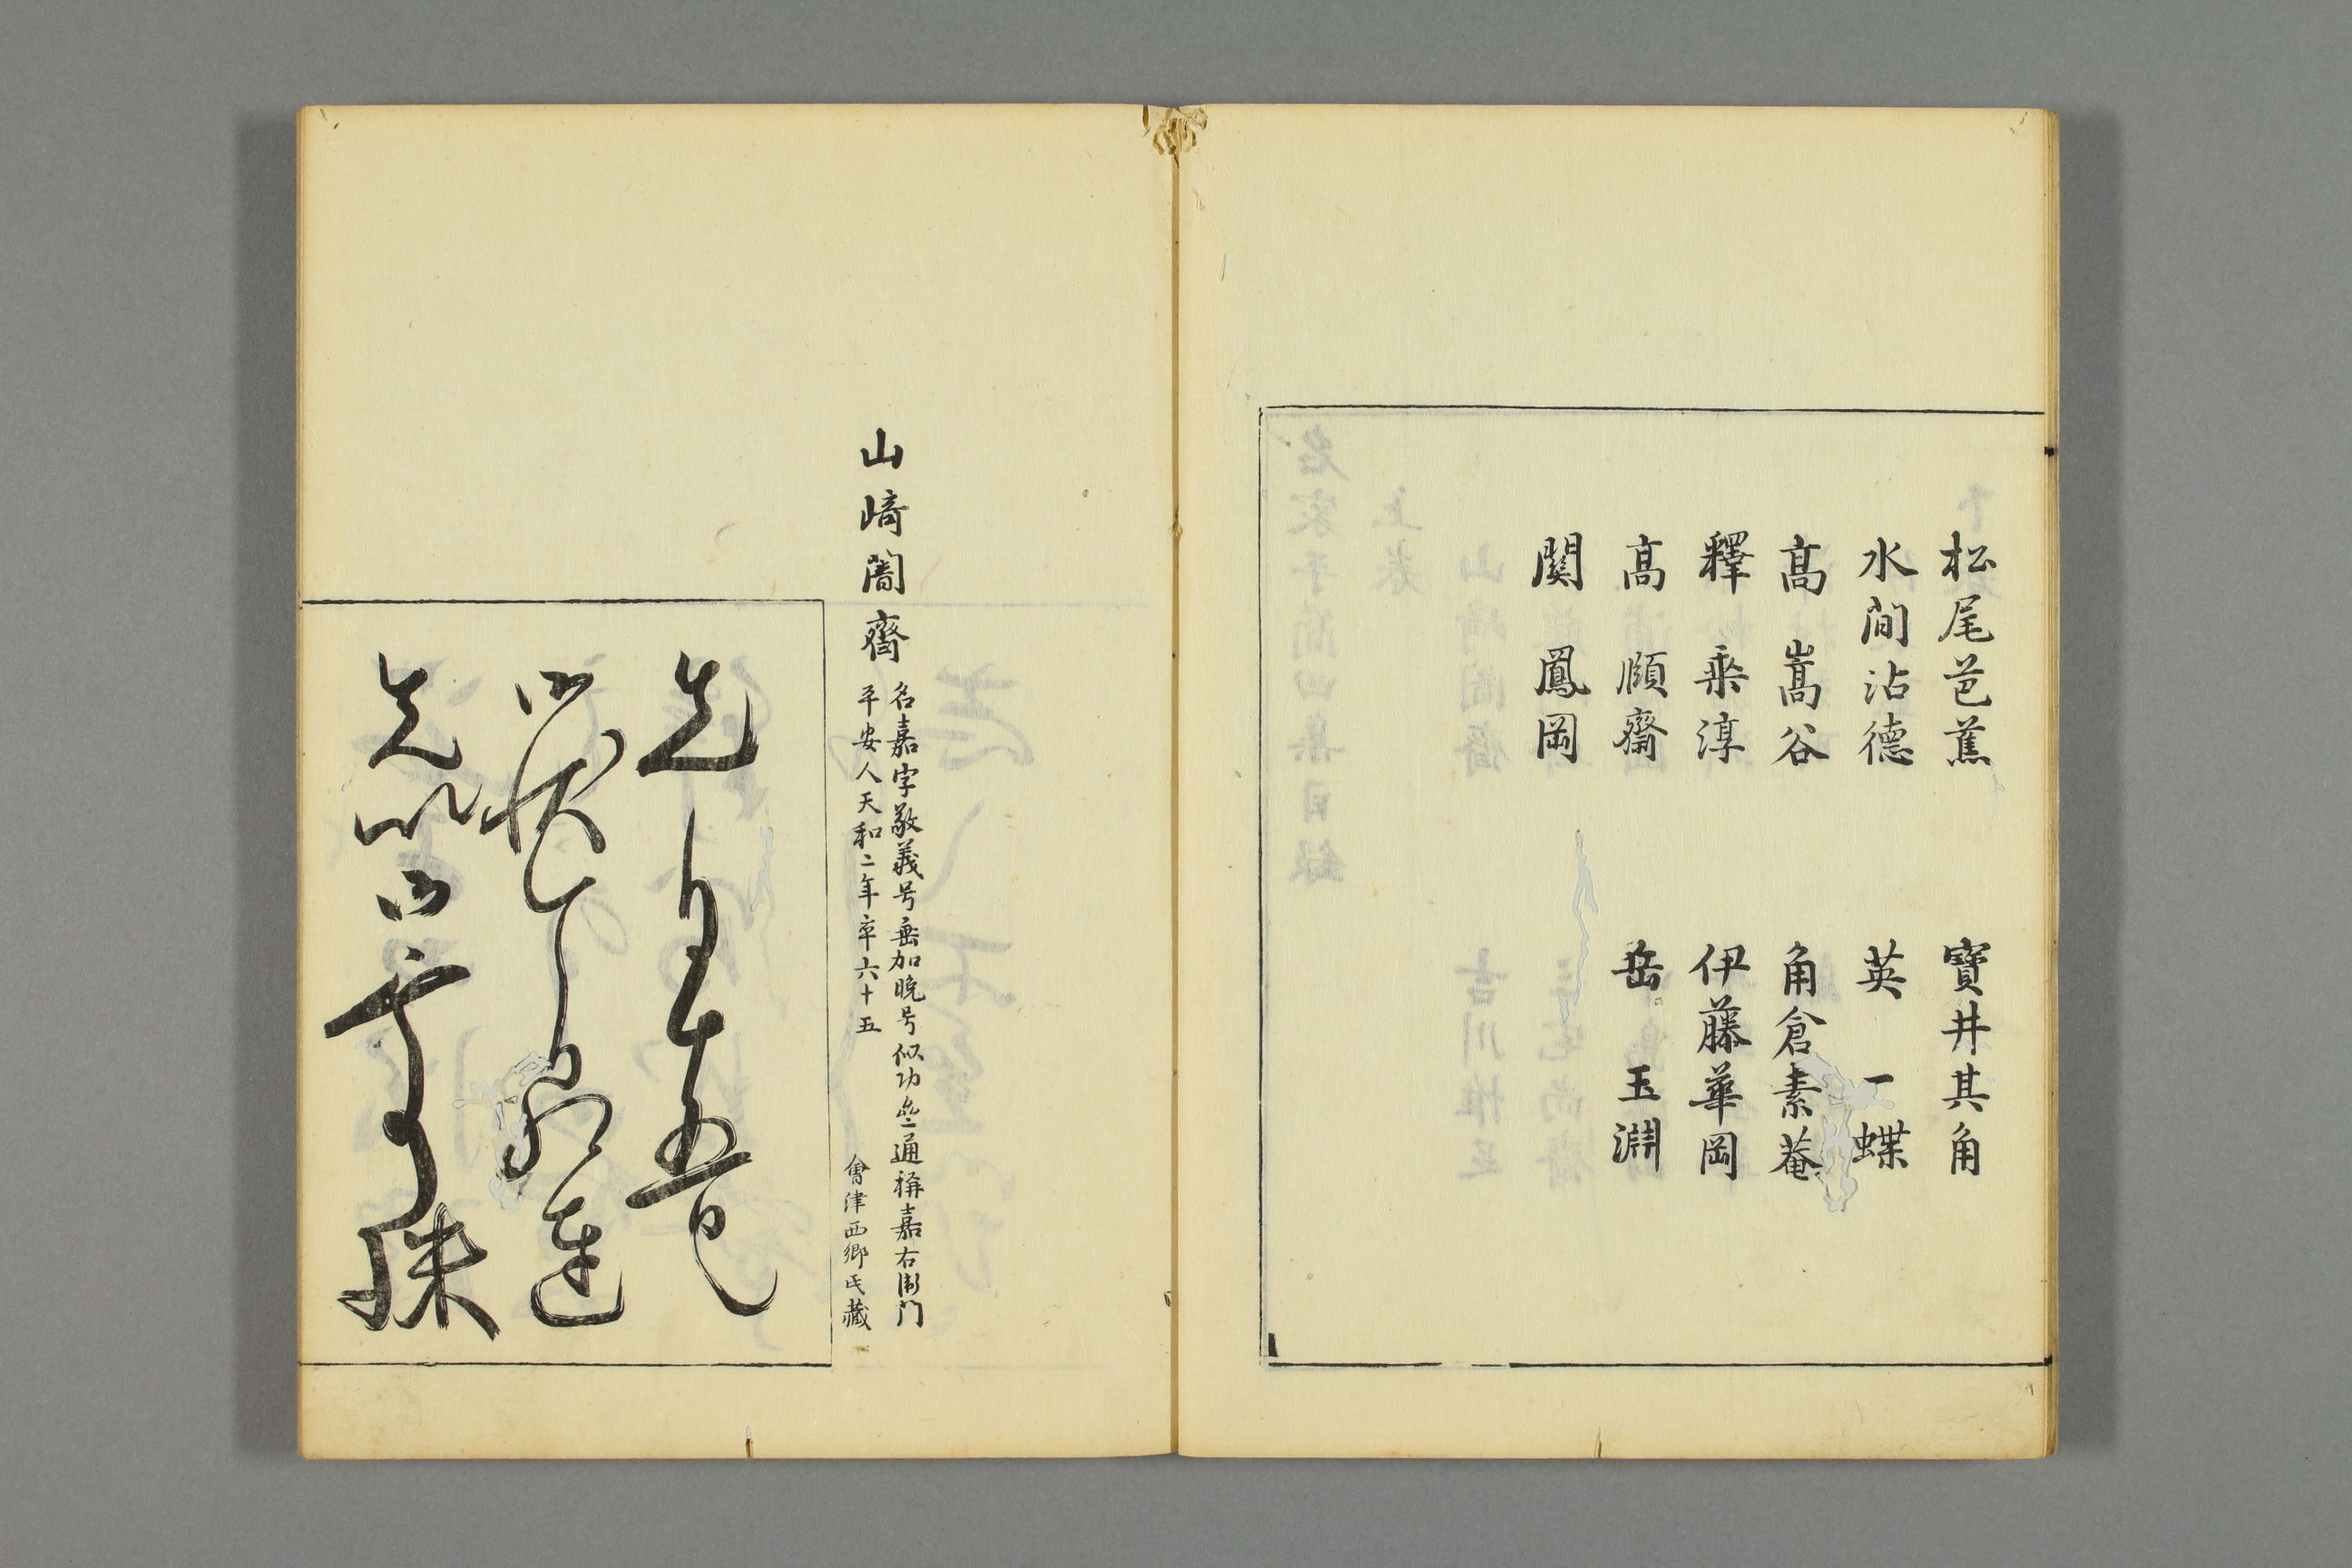 松尾芭蕉　寶井其角
水間沾德　英　一蝶
髙　嵩谷　角倉素菴
釋　乘淳　伊藤華岡
髙　頤齋　岳　玉淵
関　鳳岡
山﨑闇齋
名嘉字敬義号垂加晚号似功叁通稱嘉右衛门
平安人天和二年卒六十五
會津西郷氏藏
先月十五日
御状
先以御
殊